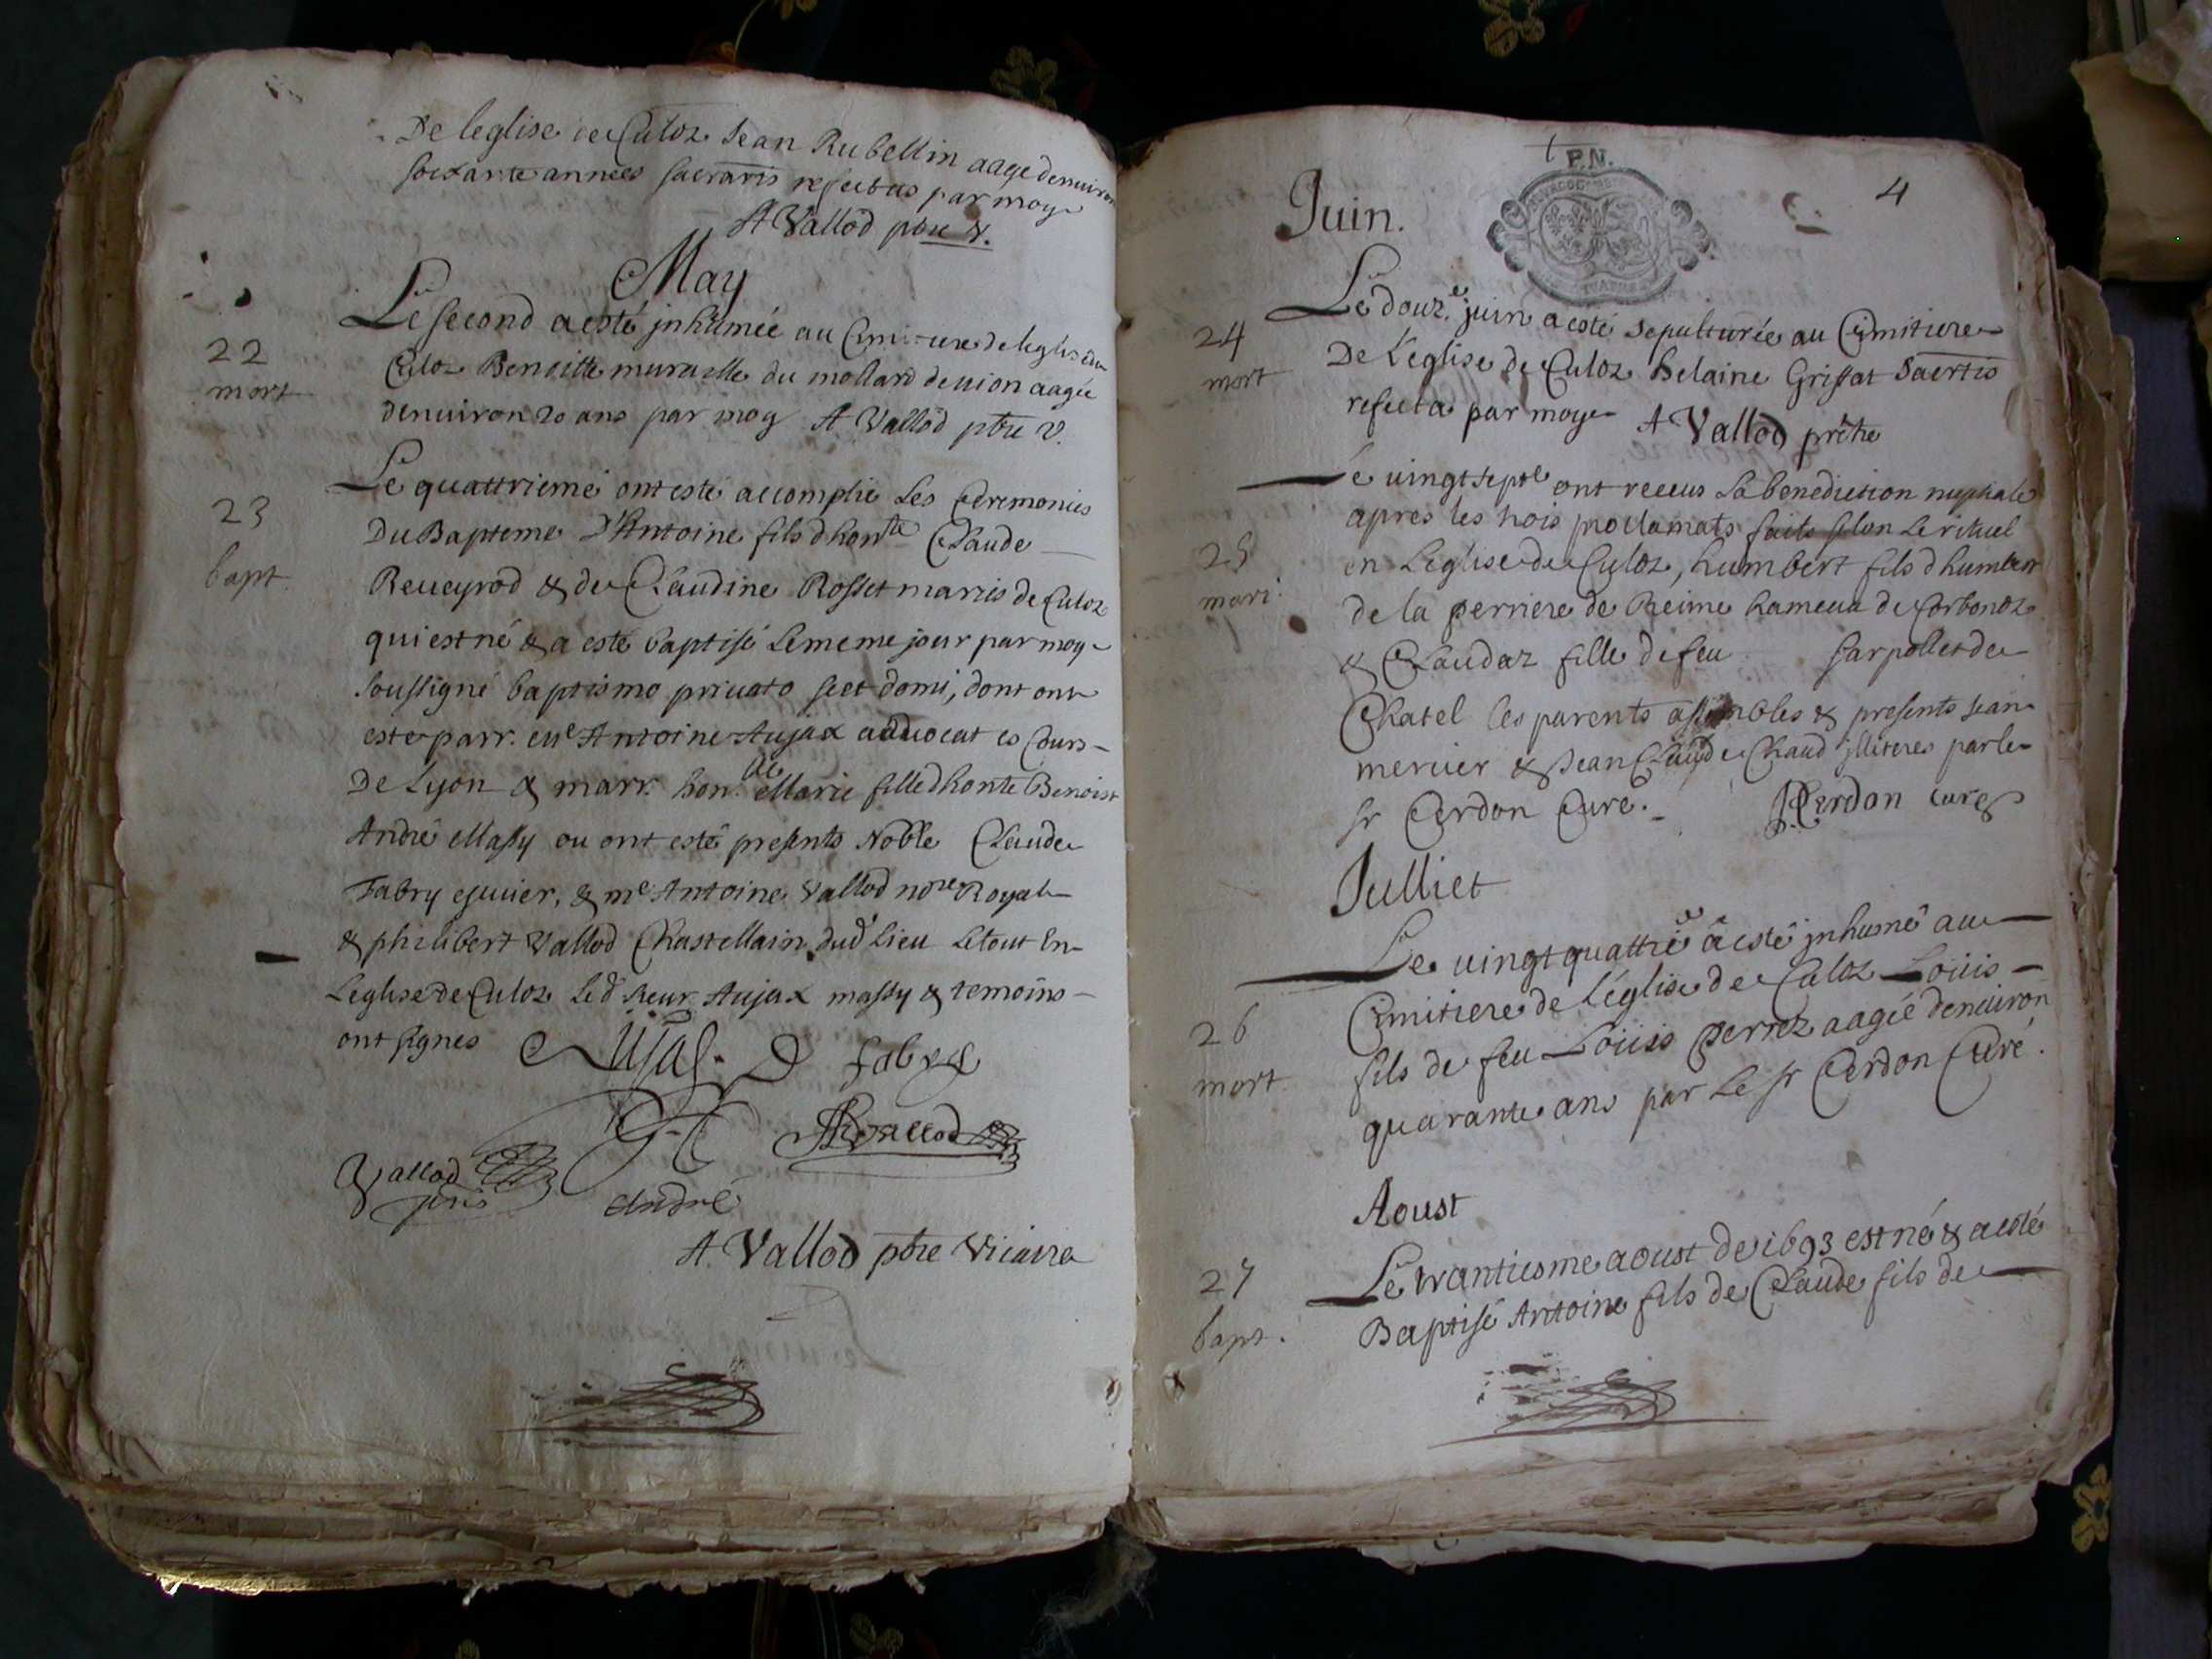 De leglise de Culoz Jean Rubellin aage denuiron
soixante années sacratis refectus par moy
A Vallod pbre V.
May
Le second a esté jnhumée au Cimitiere de leglise de
Culoz Benoitte muruelle du mollard de uion aagée
denuiron 20 ans par moy A Vallod pbre V.
22
mort
Le quattrieme ont esté accomplie Les Ceremonies
Du Bapteme d'Antoine fils d honte Claude
23
bapt.
Reueyrod & de Claudine Rosset maries de Culoz
qui est né & a esté baptisé le meme jour par moy
soussigné baptismo priuato sed domi, dont ont
esté parr. Antoine Aujax aduocat es Cours
De Lyon & marr. hon. Marie fille d honte Benoist
André Massy ou ont esté presents Noble Claude
Fabry escuier, & me Antoine Vallod nore Royal
& philibert Vallod Chastellain dud lieu Le tout En
Leglise de Culoz Led sieur Aujax massy & temoins
ont signes
Fabry
Vallod
André
A. Vallod pbre Vicaire
P.N.
4
Juin.
Le douze juin a esté sepulturée au Cimitiere
24
mort
De L'eglise de Culoz helaine Grissat Sacrtis
refecta par moy A Vallod prêtre
Le uingt septe ont receus La benediction nuptiale
apres les trois proclamats faits selon Le rituel
25
mari.
en Leglise de Culoz, humbert fils d humbert
de la perriere de Reime hameau de Corbonoz
& Claudaz fille de feu sarpollet de
Chatel les parents assembles & presents Jean
mercier & Jean Claude Chaud illiteres par le
sr Cerdon Curé. Cerdon curé
Julliet
Le uingt quattrie a esté jnhumé au
Cimitiere de L'église de Culoz Loüis
26
mort
fils de feu Loüis Perrez aagée denuiron
quarante ans par Le sr Cerdon Curé.
Aoust
Le trantiesme aoust de 1693 est né & a esté
27
bapt.
Baptisé Antoine fils de Claude fils de